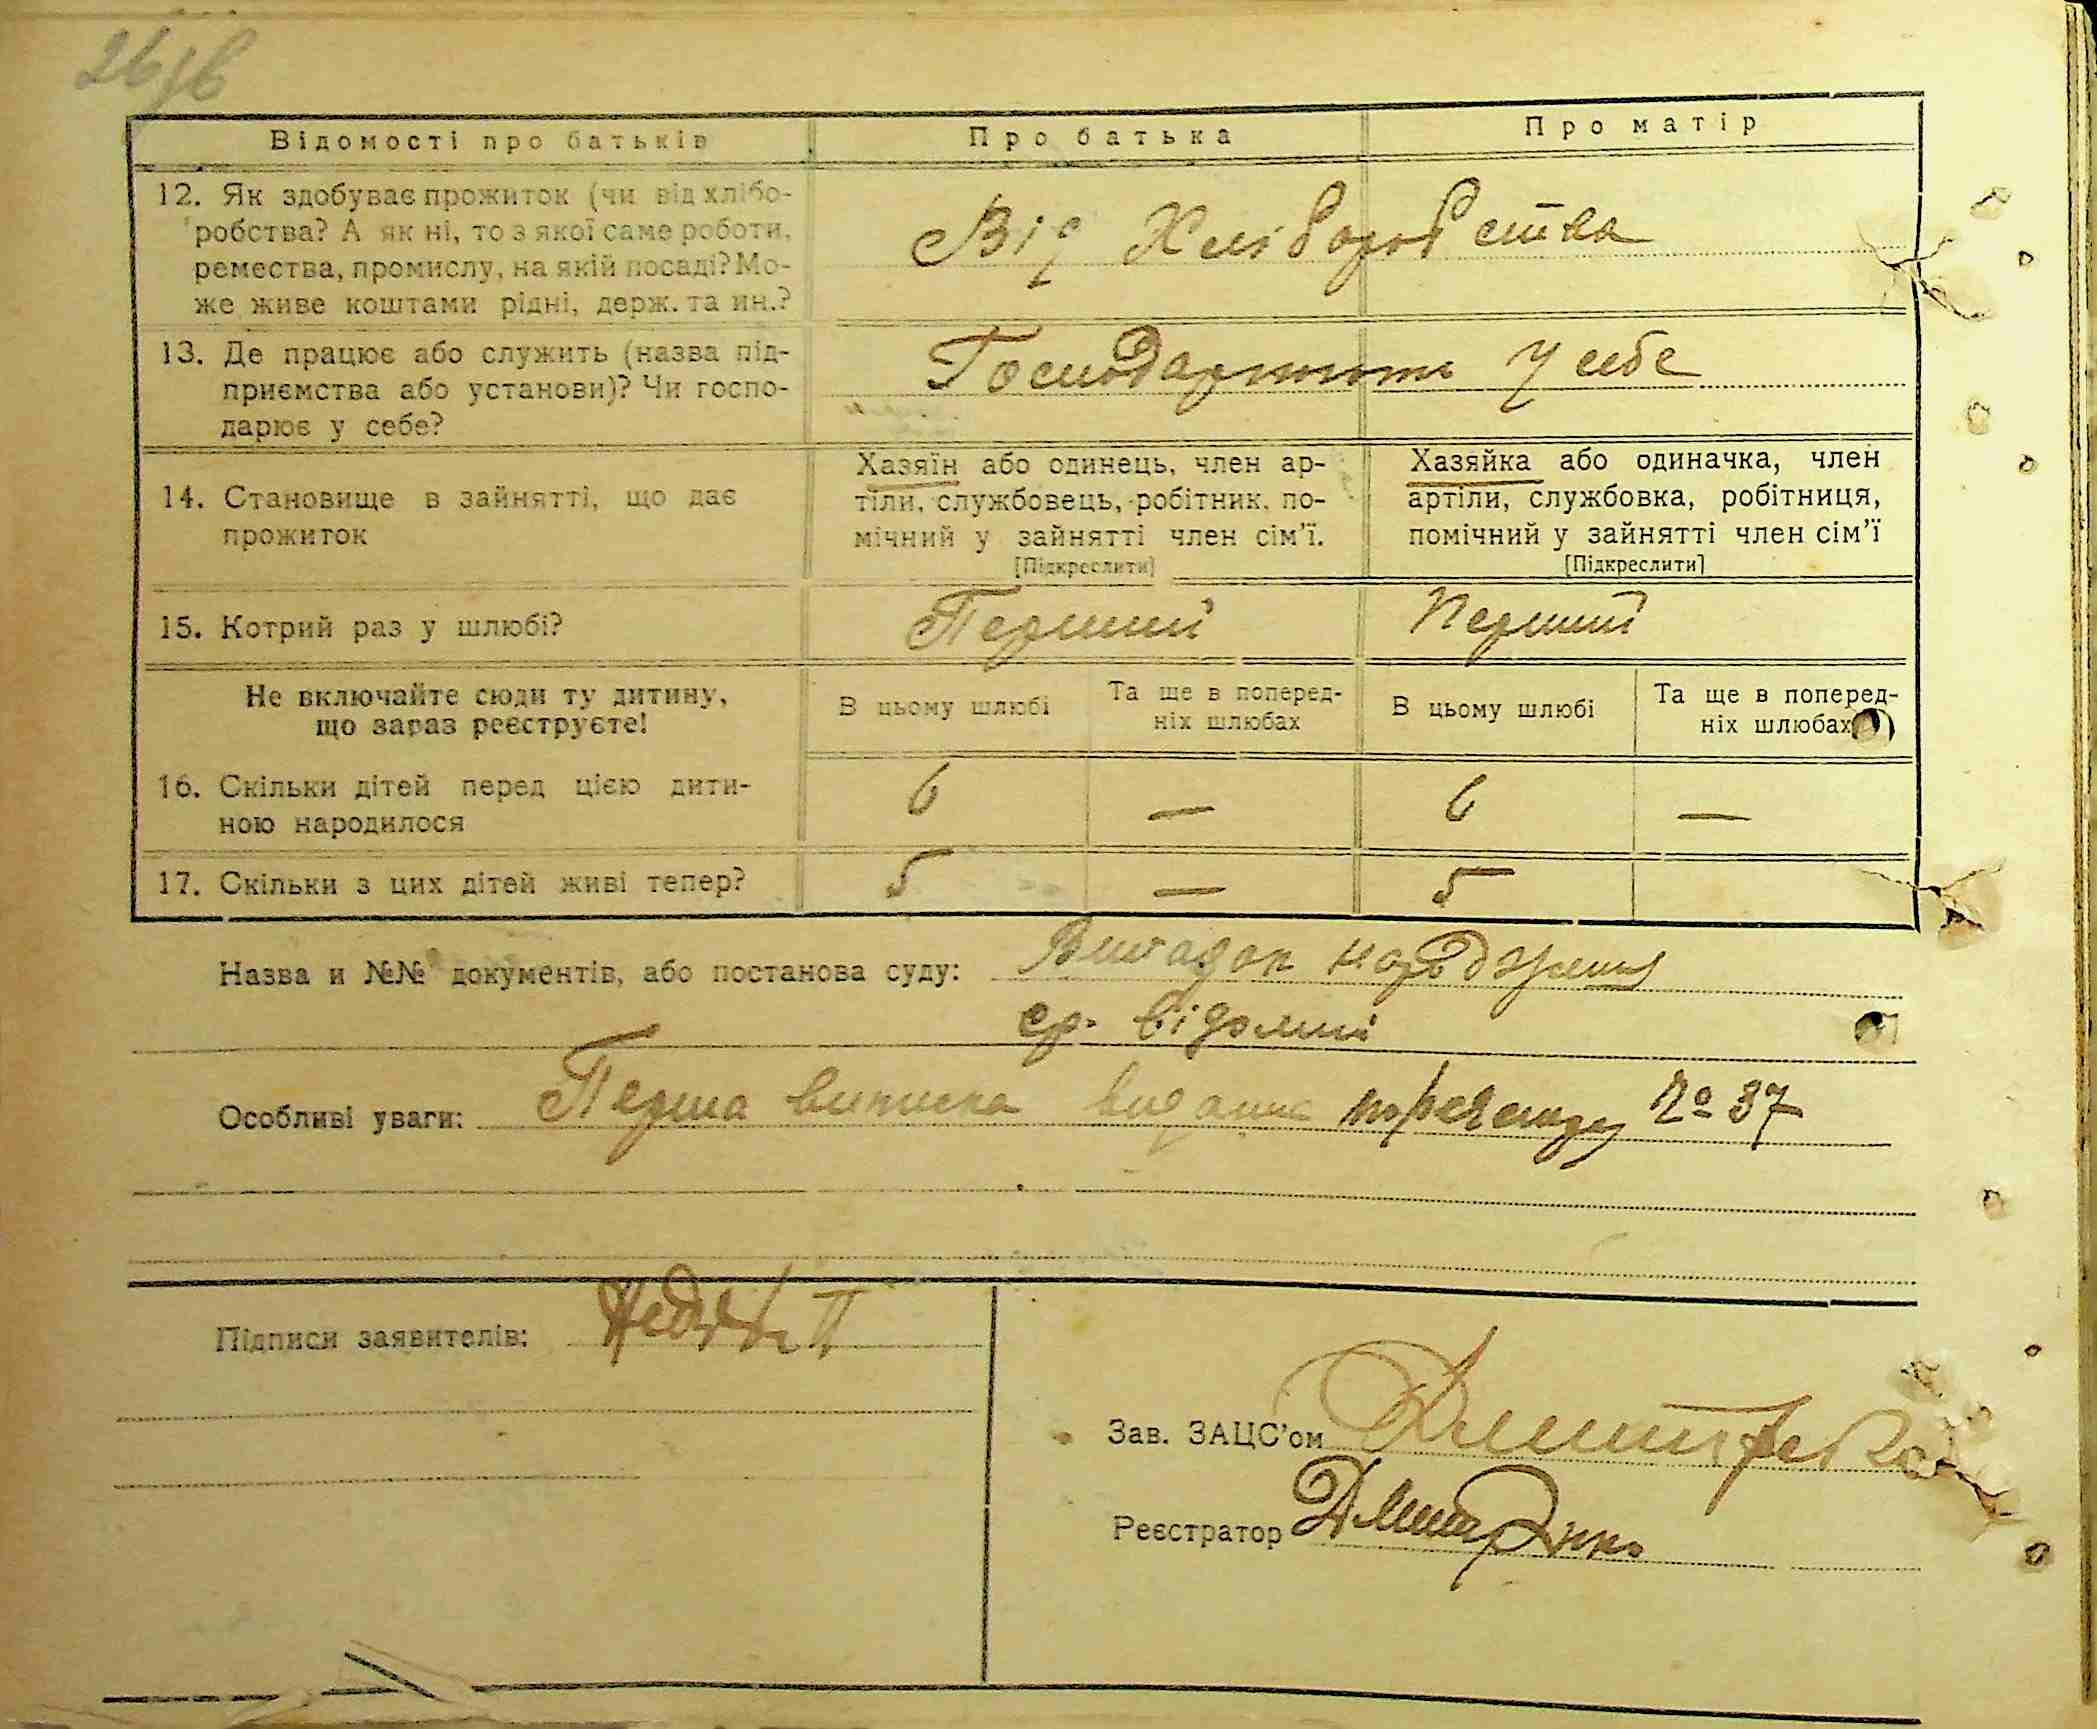 26зв
Відомості про батьків
Про батька
Про матір
12. Як здобуває прожиток (чи від хлібо-
робства? А як ні, то з якої саме роботи,
ремества, промислу, на якій посаді? Мо-
же живе коштами рідні, держ. та ин.?
Від Хліборобства
13. Де працює або служить (назва під-
приємства або установи)? Чи госпо-
дарює у себе?
у себе
14. Становище в зайнятті, що дає
прожиток
Хазяїн або одинець, член ар-
тіли, службовець, робітник, по-
мічний у зайнятті член сім'ї.
[Підкреслити]
Хазяйка або одиначка, член
артіли, службовка, робітниця,
помічний у зайнятті член сім'ї
[Підкреслити]
15. Котрий раз у шлюбі?
Перший
Перший
Не включайте сюди ту дитину,
що зараз реєструєте!
В цьому шлюбі
Та ще в поперед-
ніх шлюбах
В цьому шлюбі
Та ще в поперед-
ніх шлюбах
16. Скільки дітей перед цією дити-
ною народилося
6
—
6
—
17. Скільки з цих дітей живі тепер?
5
—
5
Назва и №№ документів, або постанова суду: Випадок народження
відомий
Особливі уваги: Перша виписка видана № 37
Підписи заявителів:
Зав. ЗАЦС'ом
Реєстратор